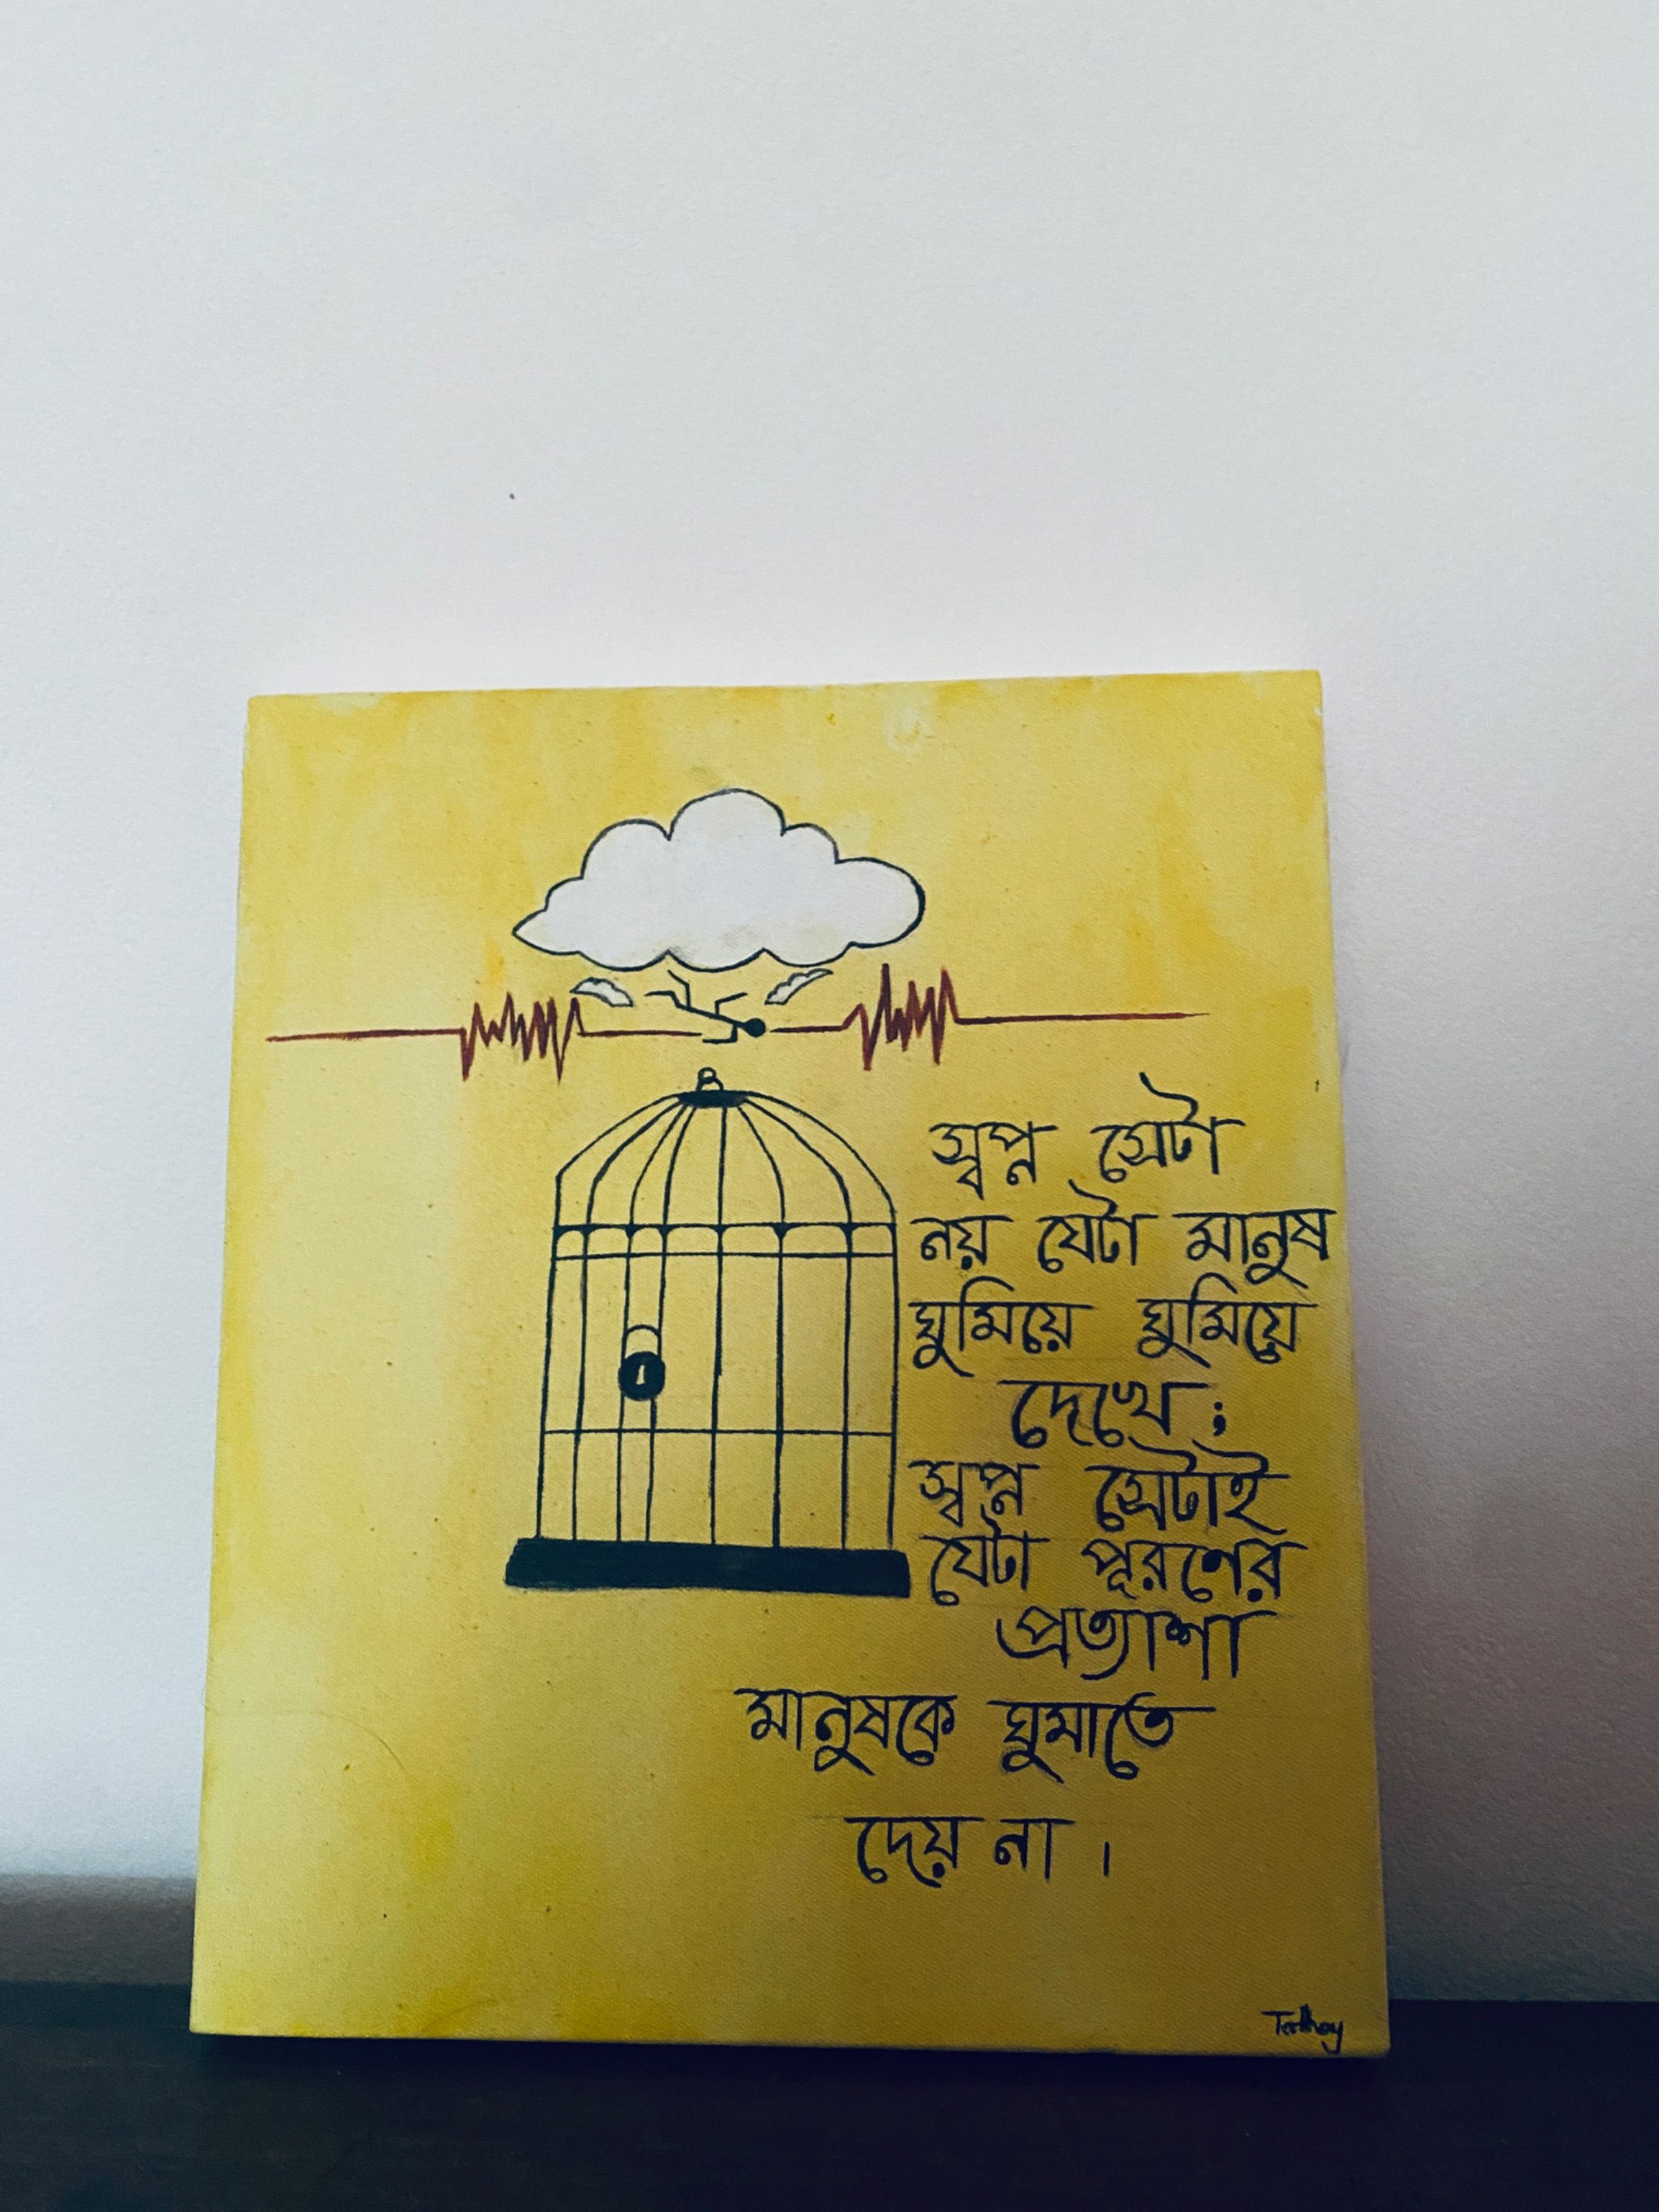 স্বপ্ন সেটা
নয় যেটা মানুষ
ঘুমিয়ে ঘুমিয়ে
দেখে ;
স্বপ্ন সেটাই
যেটা পূরণের
প্রত্যাশা
মানুষকে ঘুমাতে
দেয় না ।